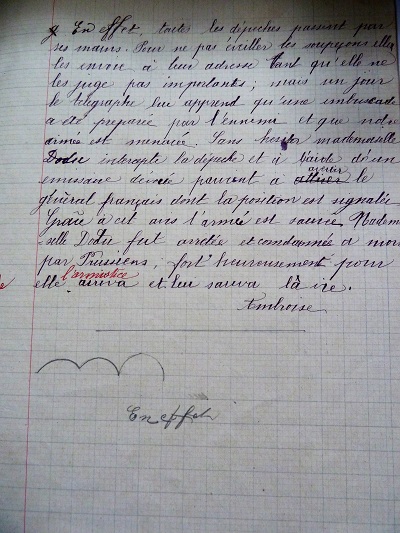 En effet, toutes les dépêches passent par
ses mains. Pour ne pas éveiller les soupçons elle
les envoie à leur adresse tant qu'elle ne
les juge pas importantes; mais un jour
le télégraphe lui apprend qu'une embuscade
a été préparée par l'ennemi et que notre
armée est menacée. Sans hésiter mademoiselle
Dodu intercepte la dépêche et à l'aide d'un
émissaire parvient à avertir le
général français dont la position est signalée
Grâce à cet avis l'armée est sauvée Madem
selle Dodu fut arrêtée et condamnée à mort
par Prussiens, fort heureusement pour
elle l'armistice arriva et leur sauva la vie.
Ambroise
En effet